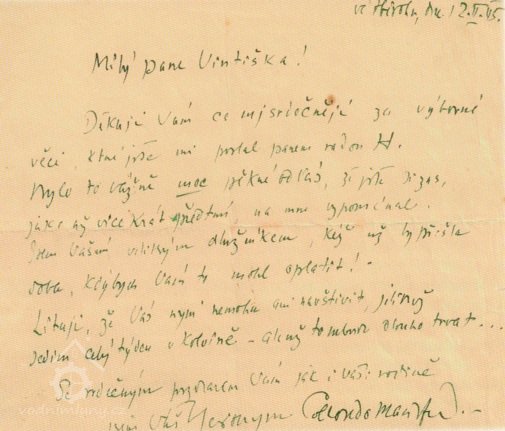 12.II.45.
Milý pane Vintiška!
Děkuji Vám co nejsrdečněji za výborné
věci, které jste mi poslal panem radou H.
Bylo to vážně moc pěkné od Vás, že jste si zas,
jako už více krát předtím, na mne vzpomínal.
Jsem Vaším velikým dlužníkem, kéž už by přišla
doba, kdybych Vám to mohl oplatit! -
Lituji, že Vás nyní nemohu ani navštívit, jelikož
sedím celý týden v - dlouho trvat...
Se srdečným pozdravem Vám jak i Vaší rodině
Váš Jeronym
vodnimlyny.cz